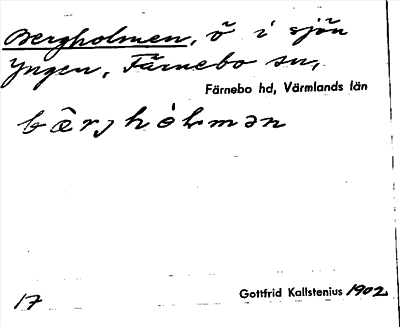 Bergholmen, ö i sjön
Yngen, Färnebo sn,
Färnebo hd, Värmlands län
17
Gottfrid Kallstenius 1902